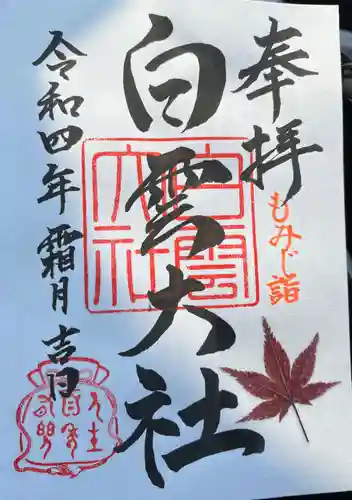 奉拝
もみじ詣
白雲大社
令和四年 霜月 吉日
白雲大社